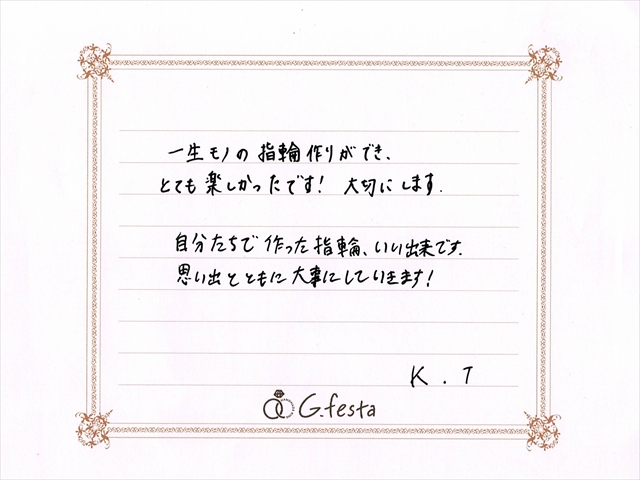 一生モノの指輪作りができ、
とても楽しかったです! 大切にします.
自分たちで作った指輪、いい出来です.
思い出とともに大事にしていきます!
K . T
G.festa